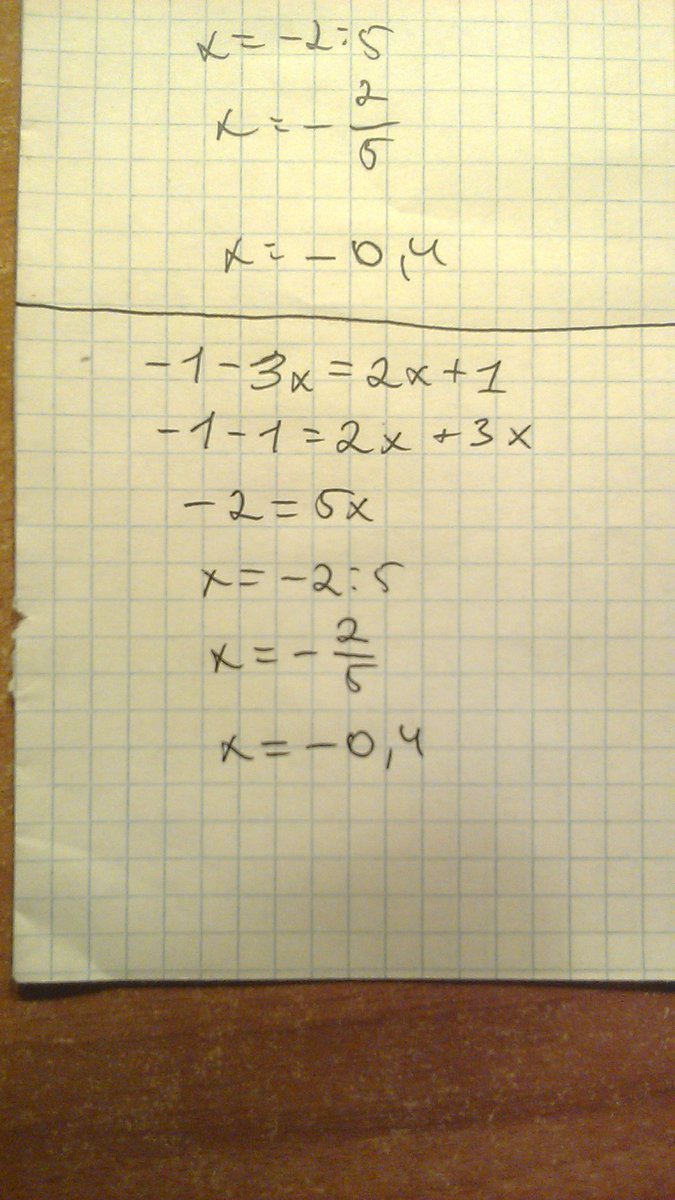 x = -2 : 5
x = - 2/5
x = - 0,4
-1 - 3x = 2x + 1
-1 - 1 = 2x + 3x
-2 = 5x
x = -2 : 5
x = - 2/5
x = -0,4